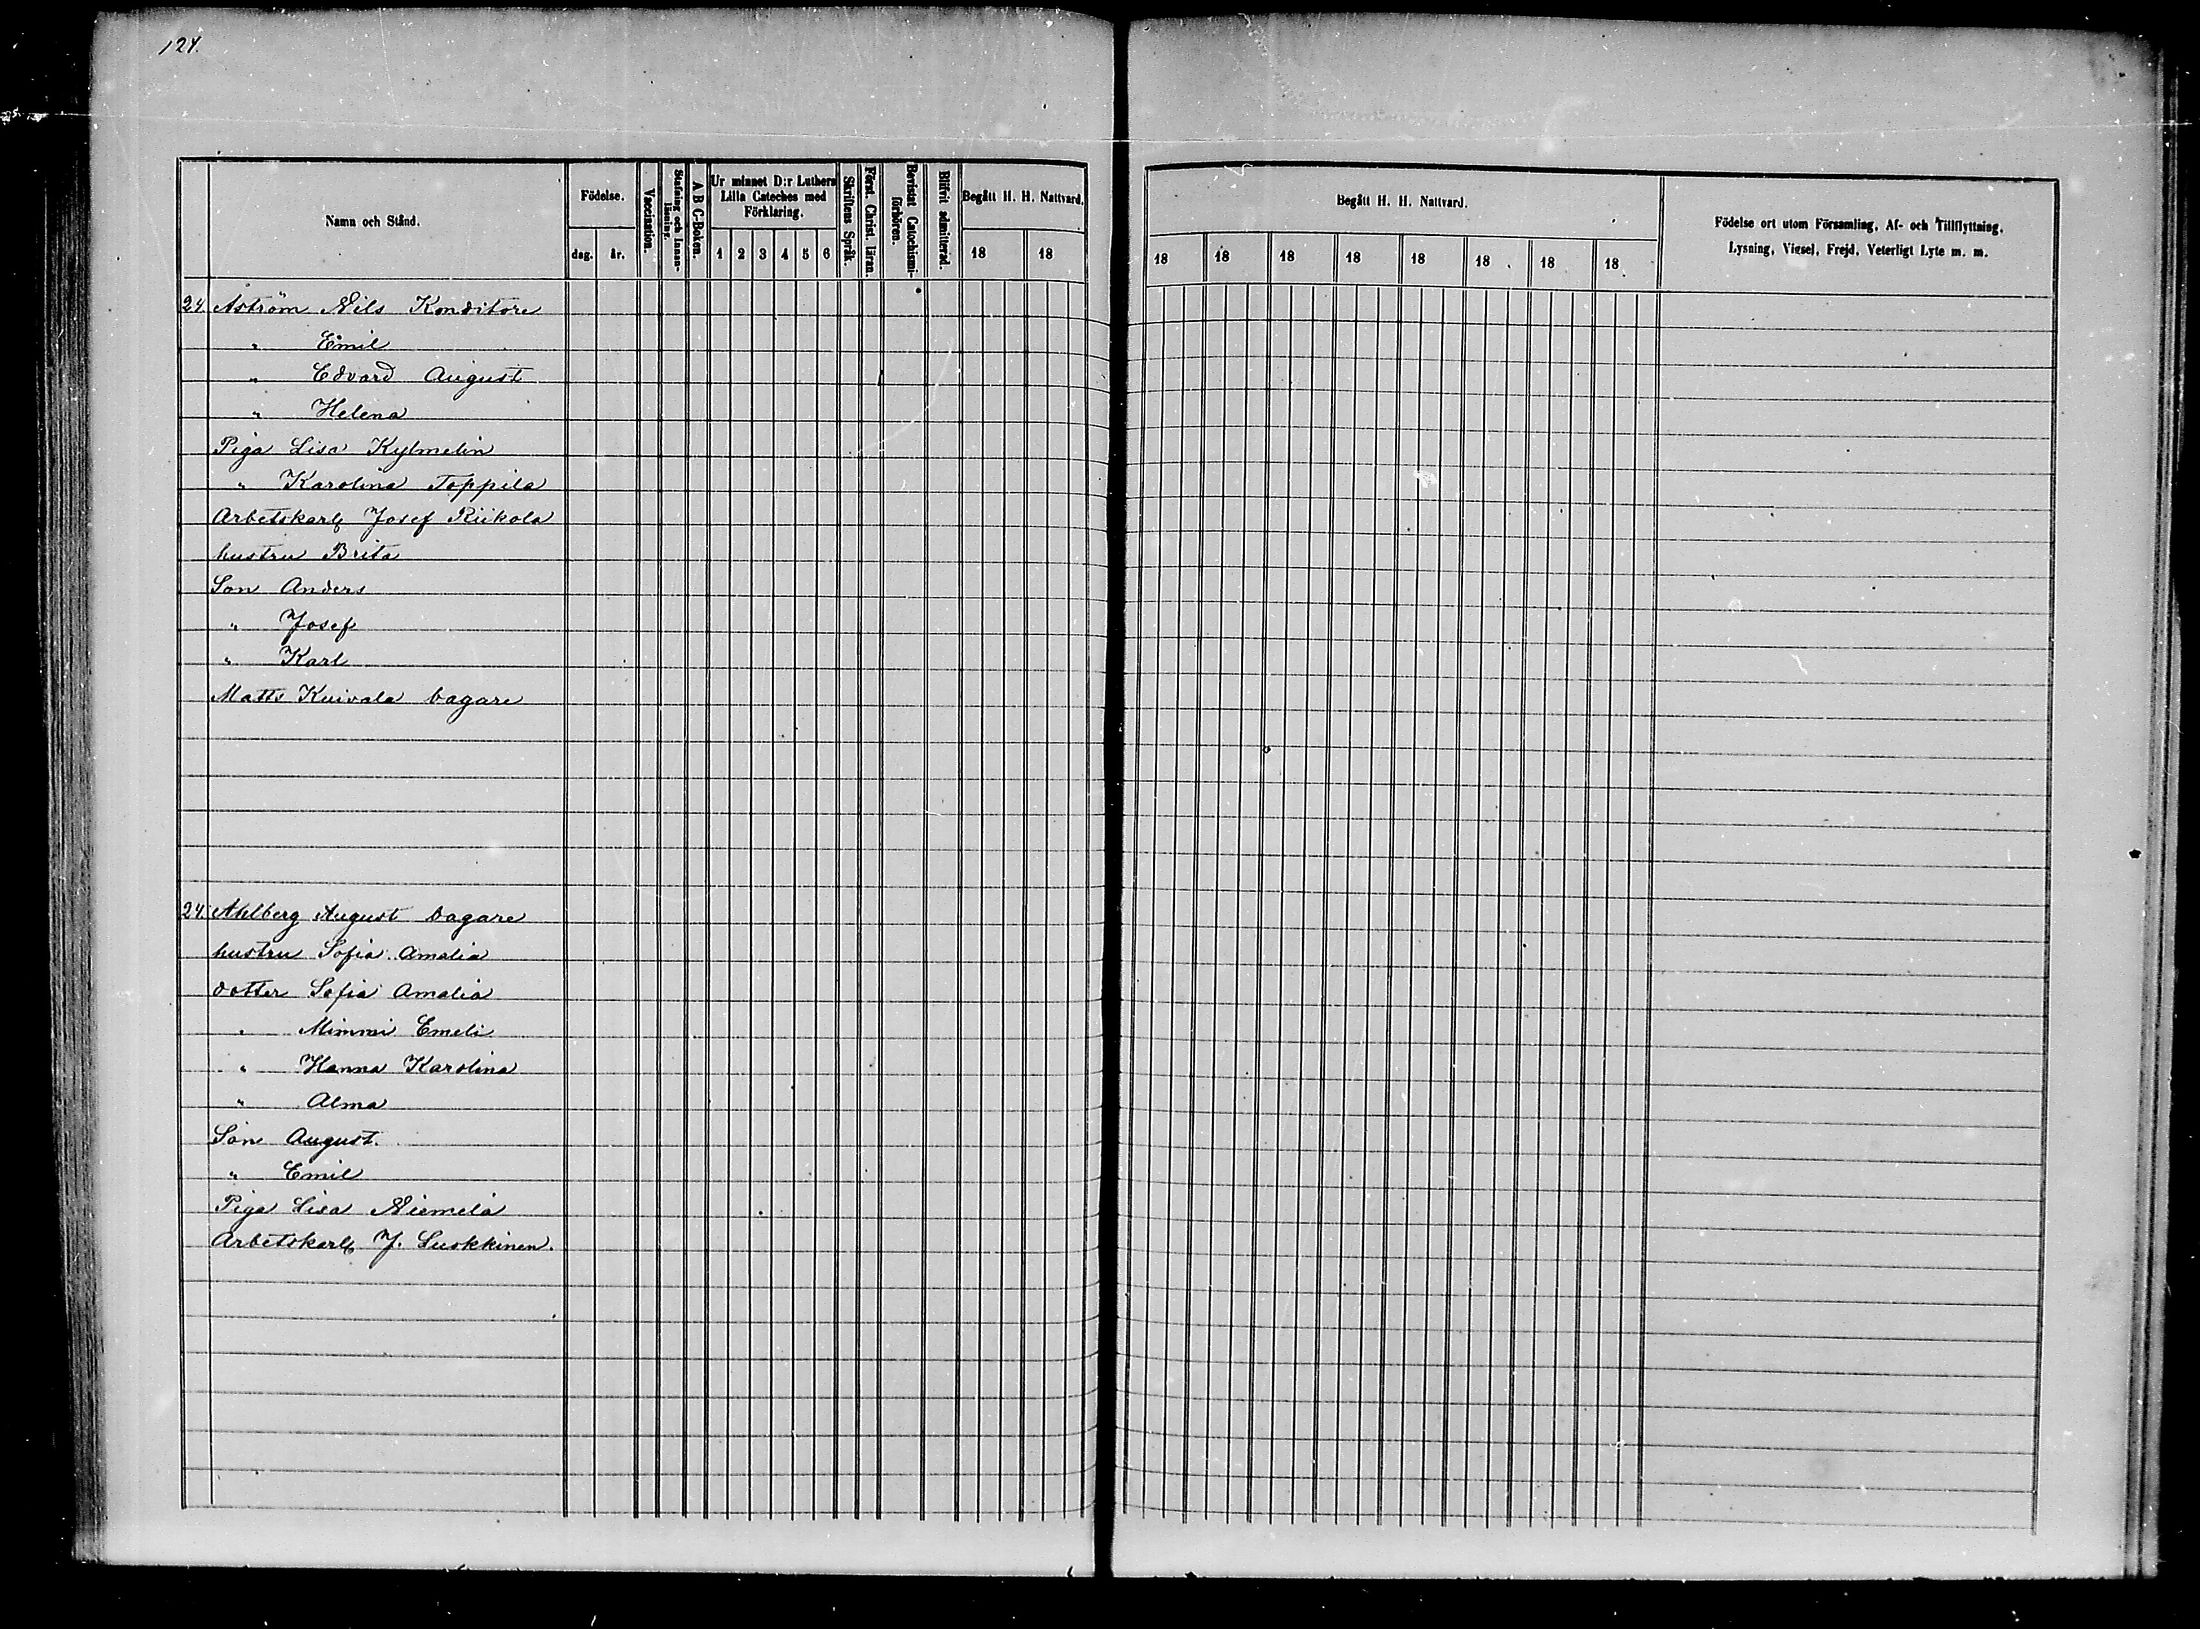 124.
Namn och Stånd.
Födelse.
dag.
år.
Vaccination.
Stafning och Innan-
läsning.
A B C-Boken.
Ur minnet D:r Luthers
Lilla Cateches med
Förklaring.
1 2 3 4 5 6
Skriftens Språk.
Först. Christ. läran.
Bevistat Catechismi-
förhören.
Blifvit admitterad.
Begått H. H. Nattvard.
18 18
Begått H. H. Nattvard.
18 18 18 18 18 18 18 18
Födelse ort utom Församling, Af- och Tillflyttning,
Lysning, Vigsel, Frejd, Veterligt Lyte m. m.
24 Åström Nils Konditore
" Emil
" Edvard August
" Helena
Piga Lisa Kylmelin
" Karolina Toppila
Arbetskarl Josef Riikola
hustru Brita
Son Anders
" Josef
" Karl
Matts Kuivala bagare
24 Ahlberg August bagare
hustru Sofia Amalia
dotter Sofia Amalia
" Mimmi Emeli
" Hanna Karolina
" Alma
Son August.
" Emil
Piga Lisa Niemelä
Arbetskarl J. Suokkinen.